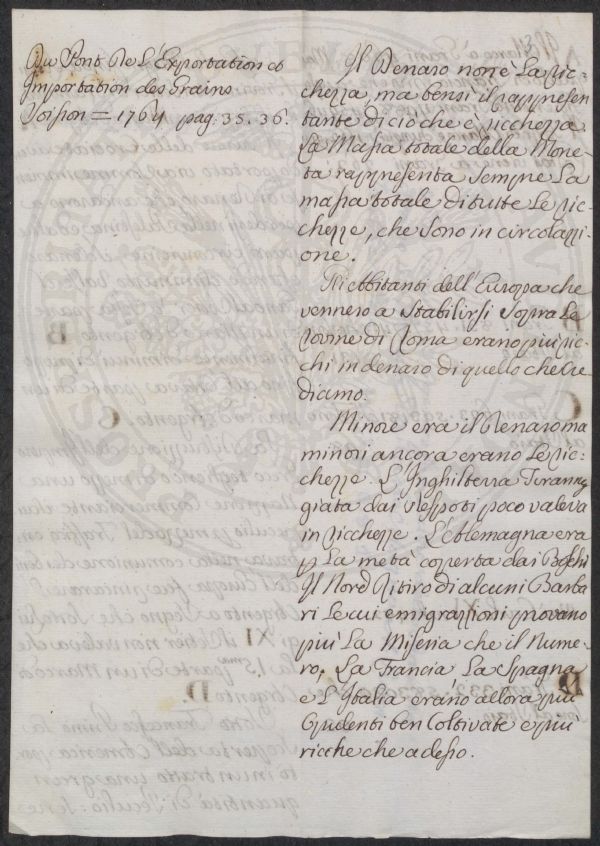 Du Pont De L'Exportation et
Importation des Grains
Soissons = 1764 pag: 35. 36.
Il Denaro non è La ric=
chezza, ma bensi il rappresen
tante di ciò che è ricchezza
La Massa totale della Mone
ta rappresenta sempre La
massa totale di tutte Le ric=
chezze, che sono in circolazzi
one.
Gli Abitanti dell'Europa che
vennero a stabilirsi sopra Le
rovine di Roma erano più ric
chi in denaro di quello che cre
diamo.
Minore era il Denaro ma
minori ancora erano Le ric=
chezze. L'Inghilterra Tiranneg
giata dai despoti poco valeva
in ricchezze. L'Alemagna era
p La metà coperta dai Boschi
Il Nord Ritiro di alcuni Barba
ri Le cui emigrazzioni provano
più La Miseria che il Nume=
ro, La Francia La Spagna
e L'Italia erano allora più
ben Coltivate e più
ricche che adesso.